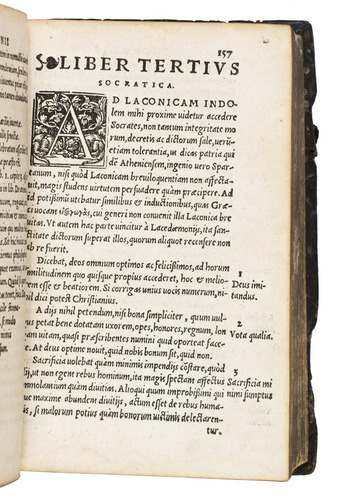 157
LIBER TERTIVS
SOCRATICA.
AD LACONICAM INDO
lem mihi proxime uidetur accedere
Socrates, non tantum integritate mo
rum, decretis ac dictorum sale, uerũ-
etiam tolerantia, ut dicas patria qui
dẽ Atheniensem, ingenio uero Spar
tanum, nisi quòd Laconicam breuiloquentiam non affecta-
uit, magis studens uirtutem persuadere quàm præcipere. Ad
id potissimũ utebatur similibus & inductionibus, quas Græ-
ci uocant
cui generi non conuenit illa Laconica bre
uitas. Vt autem hac parte uincitur à Lacedæmonijs, ita san-
ctitate dictorum superat illos, quorum aliquot recensere non
re fuerit.
Dicebat, deos omnium optimos ac felicissimos, ad horum
militudinem quo quisque propius accederet, hoc & melio-
em esse & beatiorem. Si corrigas unius uocis numerum, ni-
hil dici potest Christianius.
1
Deus imi
tandus.
A dijs nihil petendum, nisi bona simpliciter, quum uul-
us petat bene dotatam uxorem, opes, honores, regnum, lon
am uitam, quasi præscribentes numini quid oporteat face-
e. At deus optime nouit, quid nobis bonum sit, quid non.
2
Vota qualia.
Sacrificia uolebat quàm minimis impendijs cõstare, quòd
ij, ut non egent rebus hominum, ita magis spectant affectus
mmolantium quàm diuitias. Alioqui quum improbissimi qui
ue maxime abundent diuitijs, actum esset de rebus huma-
is, si malorum potius quàm bonorum uictimis delectaren-
tur.
3
Sacrificia mi
nimi sumptus